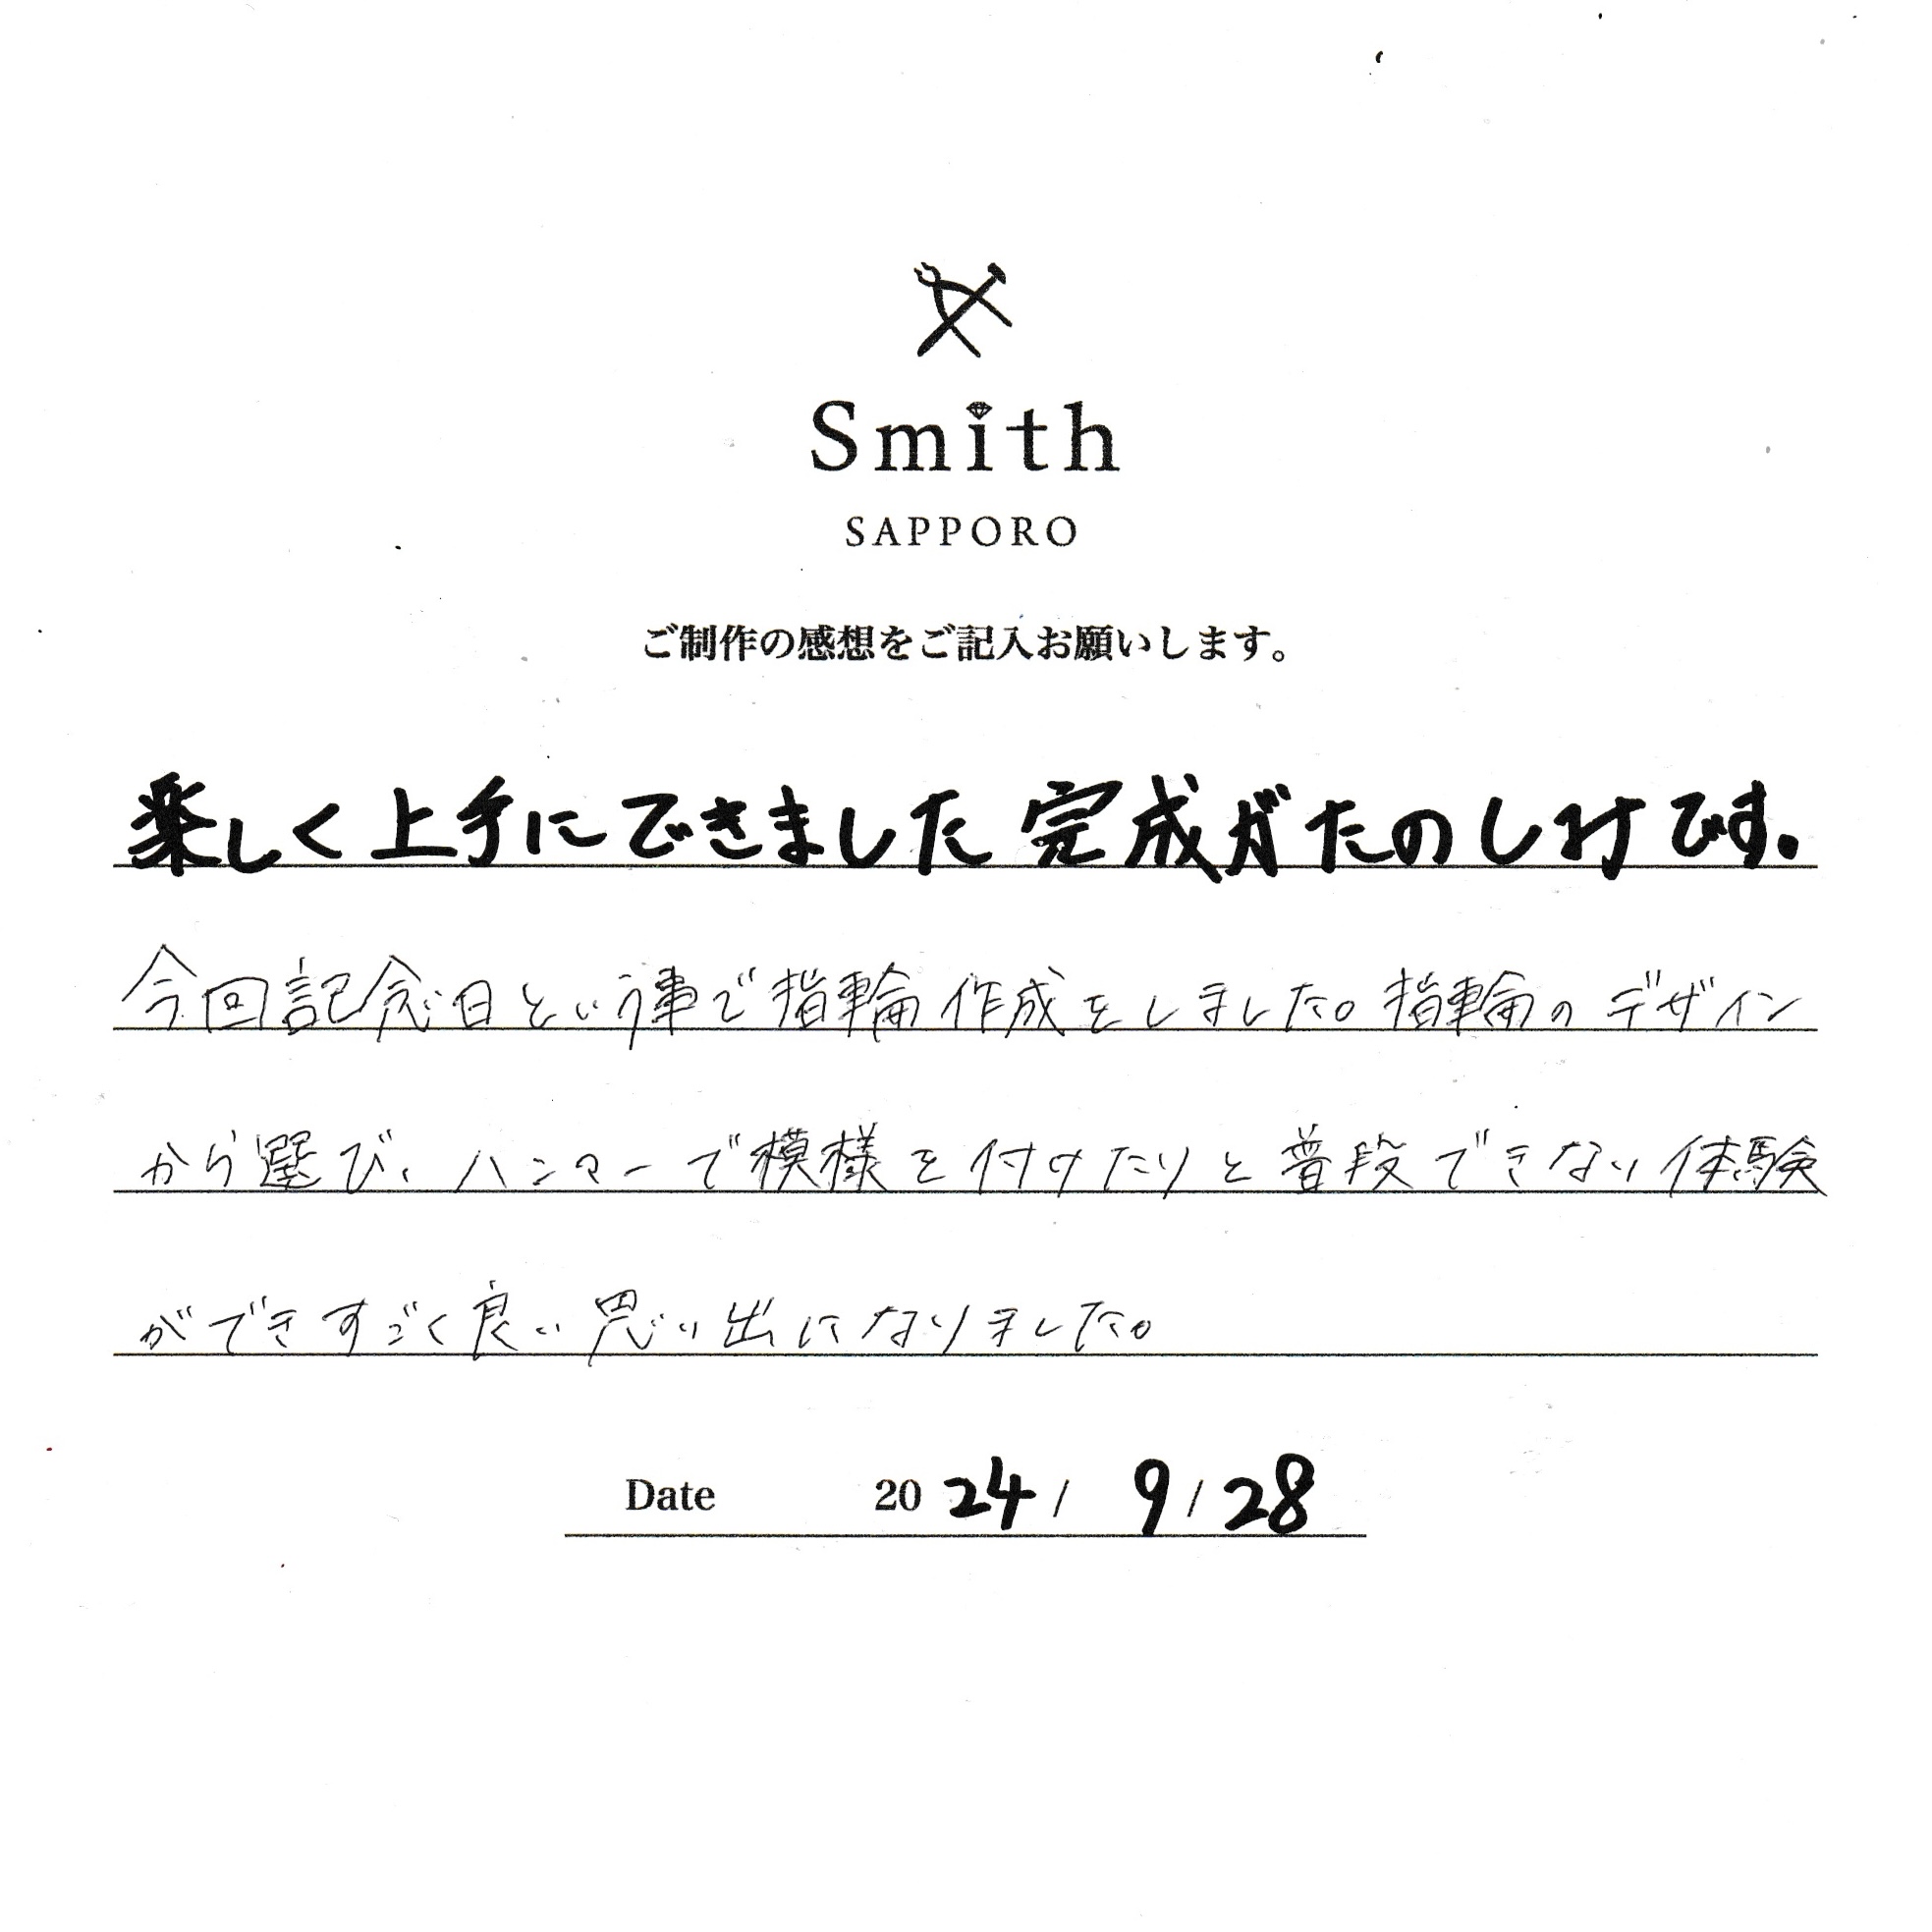 Smith
SAPPORO
ご制作の感想をご記入お願いします。
楽しく上手にできました 完成がたのしみです。
今回記念日という事で指輪作成をしました。指輪のデザイン
から選び、ハンマーで模様を付けたりと普段できない体験
ができすごく良い思い出になりました。
Date 2024/ 9/28